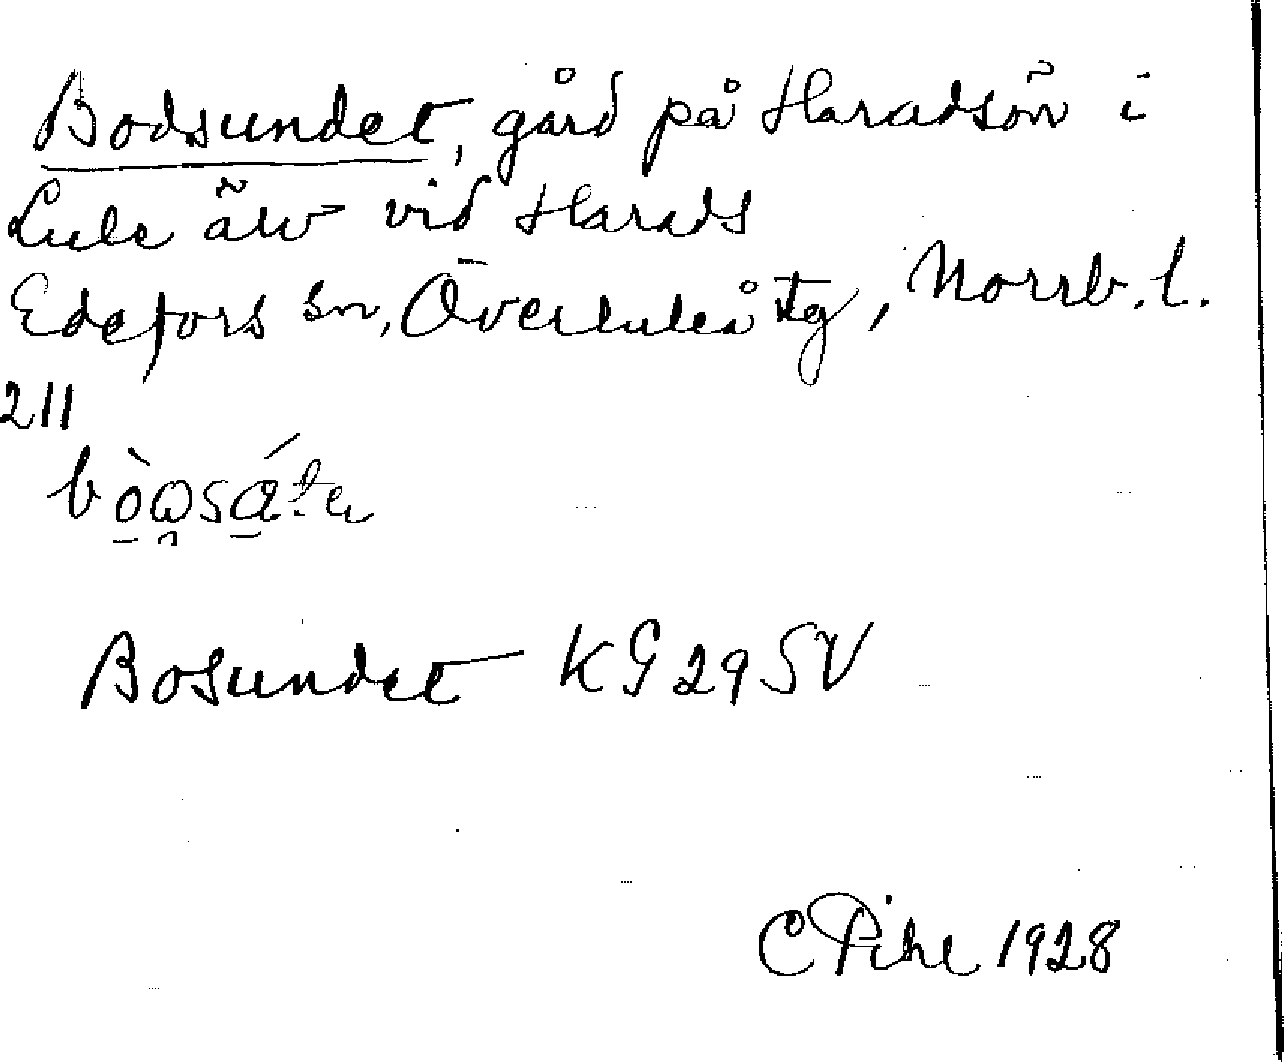 Bodsundet, gård på Haradsön i
Lule älv vid Harads
Edefors sn, Överluleå tg, Norrb. l.
211
Bosundet KG 29 SV
C Pihl 1928